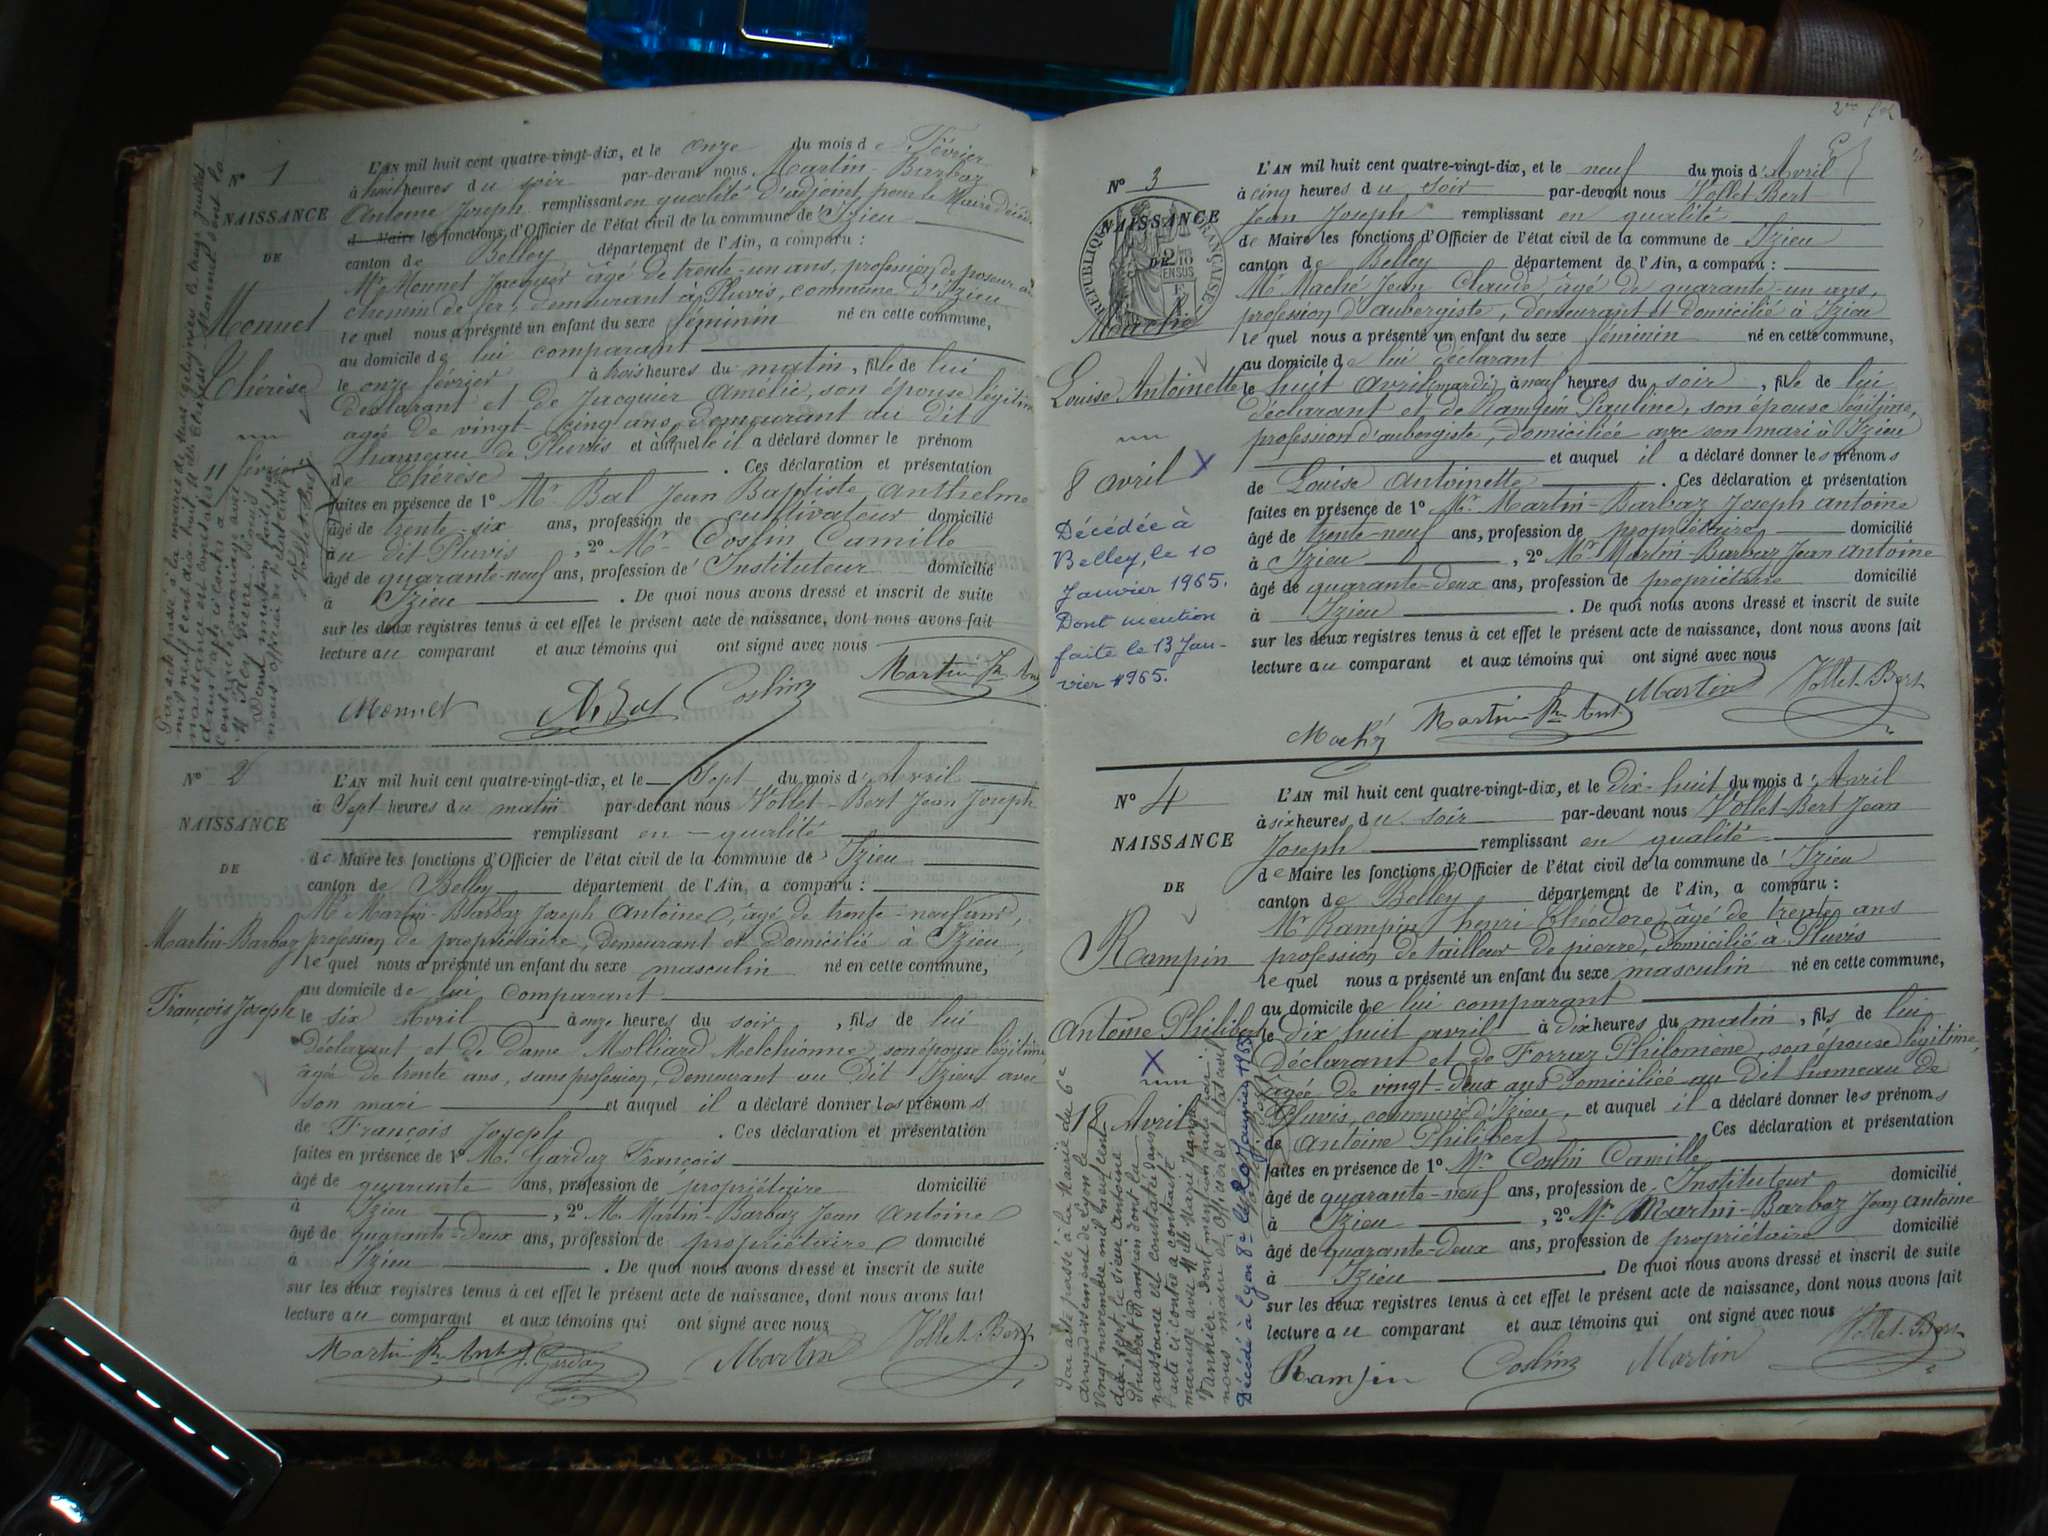 N° 1
NAISSANCE
DE
Monnet
Thérèse
11 février
L'AN mil huit cent quatre-vingt-dix, et le onze du mois de Février
à huit heures du soir par-devant nous Martin-Barbaz
Antoine Joseph remplissant en qualité d'adjoint pour le Maire décédé
les fonctions d'Officier de l'état civil de la commune de Izieu
canton de Belley département de l'Ain, a comparu :
Mr Monnet Jacques âgé de trente-un ans, profession de poseur au
chemin de fer, demeurant à Pluvis, commune d'Izieu
lequel nous a présenté un enfant du sexe féminin né en cette commune,
au domicile de lui comparant
le onze février à trois heures du matin, fille de lui
déclarant et de Jacquier Amélie, son épouse légitime
agée de vingt-cinq ans, demeurant au dit
hameau de Pluvis et à laquelle il a déclaré donner le prénom
de Thérèse. Ces déclaration et présentation
faites en présence de 1° Mr Bal Jean Baptiste Anthelme
âgé de trente-six ans, profession de cultivateur domicilié
au dit Pluvis, 2° Mr Coslin Camille
âgé de quarante-neuf ans, profession d'Instituteur domicilié
à Izieu. De quoi nous avons dressé et inscrit de suite
sur les deux registres tenus à cet effet le présent acte de naissance, dont nous avons fait
lecture au comparant et aux témoins qui ont signé avec nous
Monnet Coslin Martin-Bz Ant
N° 2
NAISSANCE
DE
Martin-Barbaz
François Joseph
L'AN mil huit cent quatre-vingt-dix, et le Sept du mois d'Avril
à Sept heures du matin par-devant nous Vollet-Bert Jean Joseph
remplissant en qualité
de Maire les fonctions d'Officier de l'état civil de la commune de Izieu
canton de Belley département de l'Ain, a comparu :
Mr Martin-Barbaz Joseph Antoine, âgé de trente-neuf ans,
profession de propriétaire, demeurant et domicilié à Izieu,
lequel nous a présenté un enfant du sexe masculin né en cette commune,
au domicile de lui comparant
le six Avril à onze heures du soir, fils de lui
Déclarant et de Dame Molliard Melchionne, son épouse légitime
âgée de trente ans, sans profession, demeurant au dit Izieu avec
son mari et auquel il a déclaré donner les prénoms
de François Joseph. Ces déclaration et présentation
faites en présence de 1° Mr Gardaz François
âgé de quarante ans, profession de propriétaire domicilié
à Izieu, 2° Mr Martin-Barbaz Jean Antoine
âgé de quarante-Deux ans, profession de propriétaire domicilié
à Izieu. De quoi nous avons dressé et inscrit de suite
sur les deux registres tenus à cet effet le présent acte de naissance, dont nous avons fait
lecture au comparant et aux témoins qui ont signé avec nous
Martin-Bz Ant F. Gardaz Martin Vollet-Bert
N° 3
NAISSANCE
DE
RÉPUBLIQUE FRANÇAISE
Maché
Louise Antoinette
8 avril
Décédée à
Belley, le 10
Janvier 1965.
Dont mention
faite le 13 Jan-
vier 1965.
L'AN mil huit cent quatre-vingt-dix, et le neuf du mois d'Avril
à cinq heures du soir par-devant nous Vollet-Bert
Jean Joseph remplissant en qualité
de Maire les fonctions d'Officier de l'état civil de la commune de Izieu
canton de Belley département de l'Ain, a comparu :
Mr Maché Jean Claude, âgé de quarante-un ans,
profession d'aubergiste, demeurant et domicilié à Izieu
lequel nous a présenté un enfant du sexe féminin né en cette commune,
au domicile de lui déclarant
le huit avril (mardi) à neuf heures du soir, fille de lui
déclarant et de Rampin Pauline, son épouse légitime,
profession d'aubergiste, domiciliée avec son mari à Izieu
et auquel il a déclaré donner les prénoms
de Louise Antoinette. Ces déclaration et présentation
faites en présence de 1° Mr Martin-Barbaz Joseph Antoine
âgé de trente-neuf ans, profession de propriétaire domicilié
à Izieu, 2° Mr Martin-Barbaz Jean Antoine
âgé de quarante-deux ans, profession de propriétaire domicilié
à Izieu. De quoi nous avons dressé et inscrit de suite
sur les deux registres tenus à cet effet le présent acte de naissance, dont nous avons fait
lecture au comparant et aux témoins qui ont signé avec nous
Maché Martin-Bz Ant. Martin Vollet-Bert
N° 4
NAISSANCE
DE
Rampin
Antoine Philibert
18 Avril
L'AN mil huit cent quatre-vingt-dix, et le Dix-huit du mois d'Avril
à six heures du soir par-devant nous Vollet-Bert Jean
Joseph remplissant en qualité
de Maire les fonctions d'Officier de l'état civil de la commune de Izieu
canton de Belley département de l'Ain, a comparu :
Mr Rampin henri Théodore, âgé de trente ans
profession de tailleur de pierre, domicilié à Pluvis
lequel nous a présenté un enfant du sexe masculin né en cette commune,
au domicile de lui comparant
le dix huit avril à dix heures du matin, fils de lui
Déclarant et de Forraz Philomène, son épouse légitime,
âgée de vingt-deux ans domiciliée au Dit hameau de
Pluvis, commune d'Izieu, et auquel il a déclaré donner les prénoms
de Antoine Philibert. Ces déclaration et présentation
faites en présence de 1° Mr Coslin Camille
âgé de quarante-neuf ans, profession d'Instituteur domicilié
à Izieu, 2° Mr Martin-Barbaz Jean Antoine
âgé de quarante-deux ans, profession de propriétaire domicilié
à Izieu. De quoi nous avons dressé et inscrit de suite
sur les deux registres tenus à cet effet le présent acte de naissance, dont nous avons fait
lecture au comparant et aux témoins qui ont signé avec nous
Rampin Coslin Martin Vollet-Bert
Par acte passé à la Mairie du 6e
arrondissement de Lyon le
vingt novembre mil neuf cent
dix sept le sieur Antoine
Philibert Rampin dont la
naissance est constatée dans
l'acte ci contre a contracté
mariage avec Mlle Marie
Décédé à Lyon 8e le 20 Janvier